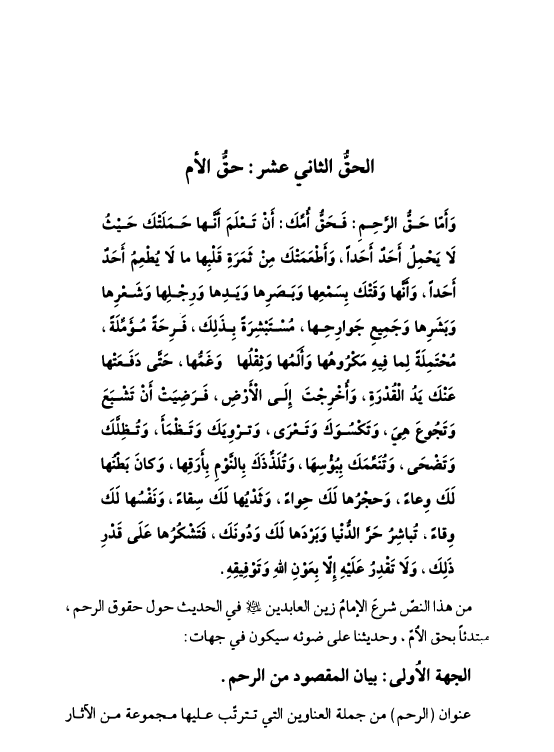 الحقُّ الثاني عشر : حقُّ الأم
وَأَمّا حَـقُّ الرَّحِـمِ : فَـحَقُّ أُمِّكَ : أَنْ تَـعْلَمَ أَنَّـها حَـمَلَتْكَ حَـيْثُ
لَا يَحْمِلُ أَحَدٌ أَحَداً ، وَأَطْعَمَتْكَ مِنْ ثَمَرَةِ قَلْبِها ما لَا يُطْعِمُ أَحَدٌ
أَحَداً ، وَأَنَّها وَقَتْكَ بِسَمْعِها وَبَـصَرِها وَيَـدِها وَرِجْـلِها وَشَـعْرِها
وَبَشَرِها وَجَمِيعِ جَوارِحِـها ، مُسْـتَبْشِرَةً بِـذلِكَ ، فَـرِحَةً مُـؤَمَّلَةً ،
مُحْتَمِلَةً لِما فِيهِ مَكْرُوهُها وَأَلَمُها وَثِقْلُها وَغَمُّها ، حَتَّى دَفَـعَتْها
عَنْكَ يَدُ الْقُدْرَةِ ، وَأُخْرِجْتَ إِلَـى الْأَرْضِ ، فَـرَضِيَتْ أَنْ تَشْـبَعَ
وَتَجُوعَ هِيَ ، وَتَكْسُـوَكَ وَتَـعْرَى ، وَتـرْوِيَكَ وَتَـظْمَأَ ، وَتُـظِلَّكَ
وَتَضْحَى ، وَتُنَعِّمَكَ بِبُؤْسِهَا ، وَتُلَذِّذَكَ بِالنَّوْمِ بِأَرَقِها ، وَكانَ بَطْنُها
لَكَ وِعاءً ، وَحجْرُها لَكَ حِواءً ، وَثَدْيُها لَكَ سِقاءً ، وَنَفْسُها لَكَ
وِقاءً ، تُباشِرُ حَرَّ الدُّنْيا وَبَرْدَها لَكَ وَدُونَكَ ، فَتَشْكُرُها عَلَى قَدْرِ
ذلِكَ ، وَلَا تَقْدِرُ عَلَيْهِ إِلّا بِعَوْنِ اللهِ وَتَوْفِيقِهِ .
من هذا النصّ شرعَ الإمامُ زين العابدين في الحديث حول حقوق الرحم ،
مبتدئاً بحق الأمّ ، وحديثنا على ضوئه سيكون في جهات :
الجهة الأولى : بيان المقصود من الرحم .
عنوان (الرحم) من جملة العناوين التي تـترتّب عليها مجموعة مـن الآثـار